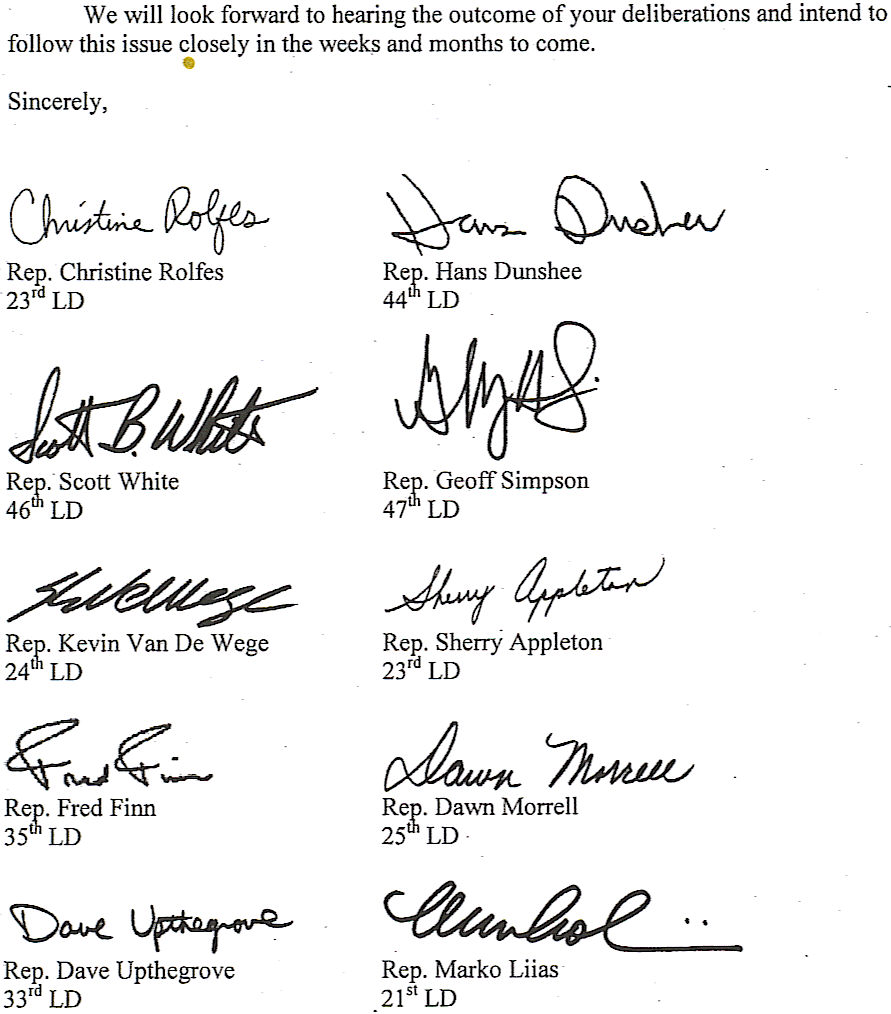 We will look forward to hearing the outcome of your deliberations and intend to
follow this issue closely in the weeks and months to come.
Sincerely,
Christine Rolfes
Rep. Christine Rolfes
23rd LD
Hans Dunshee
Rep. Hans Dunshee
44th LD
Scott B. White
Rep. Scott White
46th LD
Rep. Geoff Simpson
47th LD
Rep. Kevin Van De Wege
24th LD
Sherry Appleton
Rep. Sherry Appleton
23rd LD
Fred Finn
Rep. Fred Finn
35th LD
Dawn Morrell
Rep. Dawn Morrell
25th LD
Dave Upthegrove
Rep. Dave Upthegrove
33rd LD
Rep. Marko Liias
21st LD